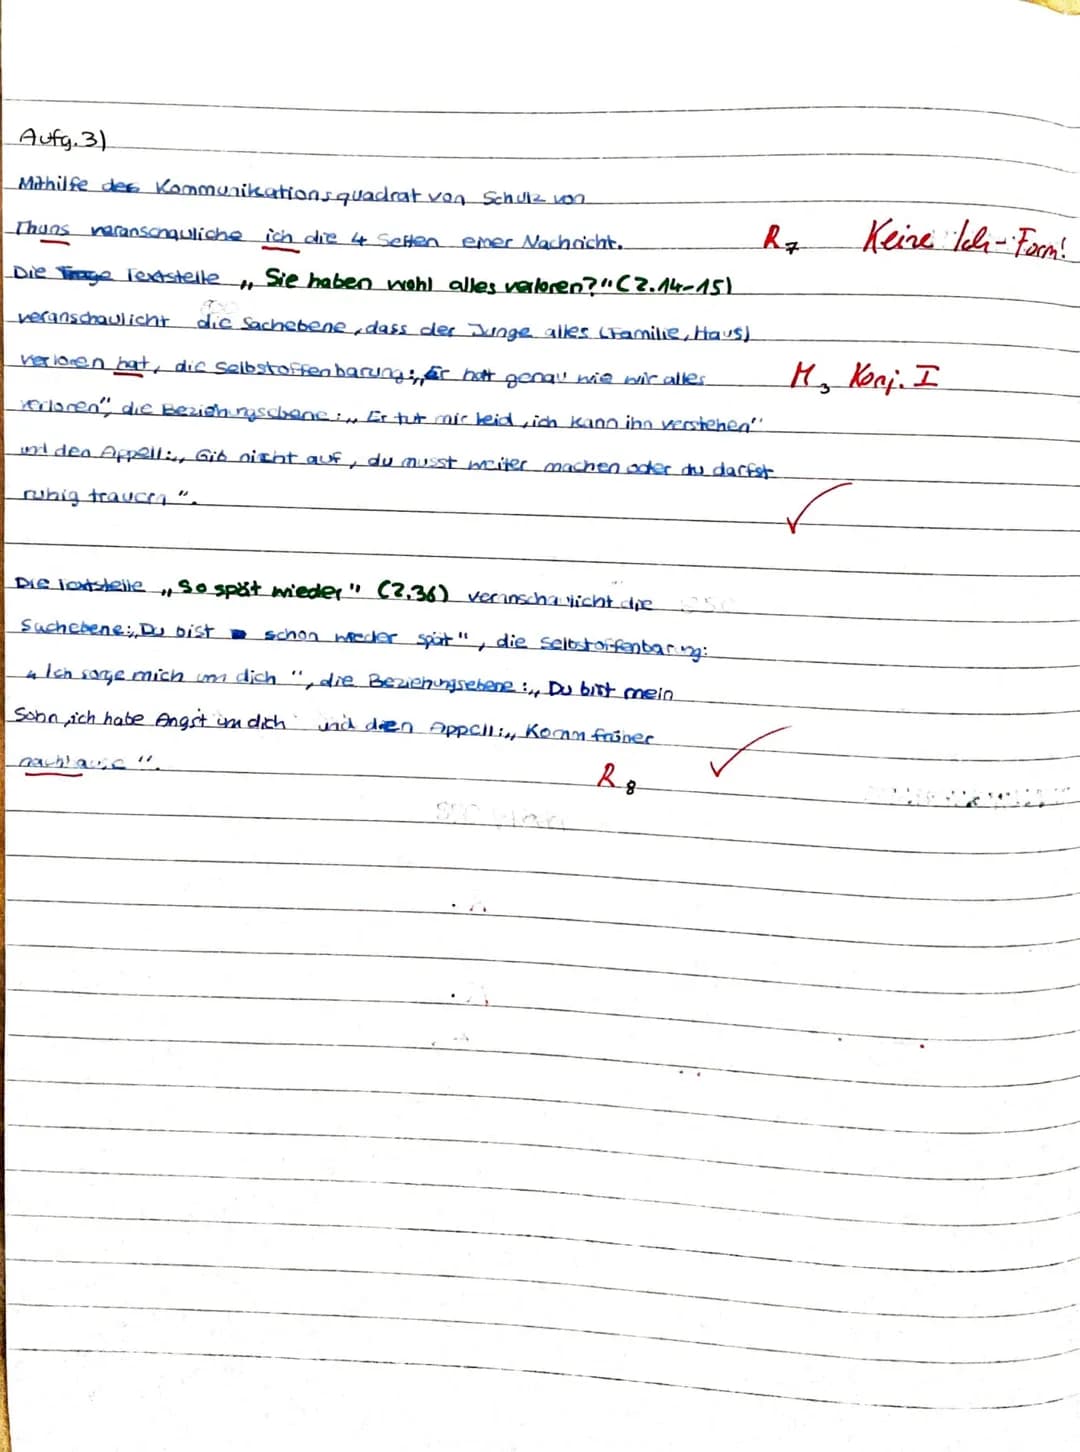 Aufg. 3)
Mithilfe des Kommunikationsquadrat von Schulz von
Thuns veranschauliche ich die 4 Seiten einer Nachricht. R7 Keine Ich-Form!
Die Textstelle „Sie haben wohl alles verloren?" (Z.14-15)
veranschaulicht die Sachebene, dass der Junge alles (Familie, Haus)
verloren hat, die Selbstoffenbarung: „Er hat genau wie wir alles M3 Konj. I
verloren", die Beziehungsebene: „Er tut mir leid, ich kann ihn verstehen"
und den Appell: „Gib nicht auf, du musst weiter machen oder du darfst
ruhig trauern".
Die Textstelle „So spät wieder" (Z.36) veranschaulicht die
Sachebene: „Du bist schon wieder spät", die Selbstoffenbarung:
„Ich sorge mich um dich", die Beziehungsebene: „Du bist mein
Sohn, ich habe Angst um dich und den Appell: „Komm früher
nachhause". R8